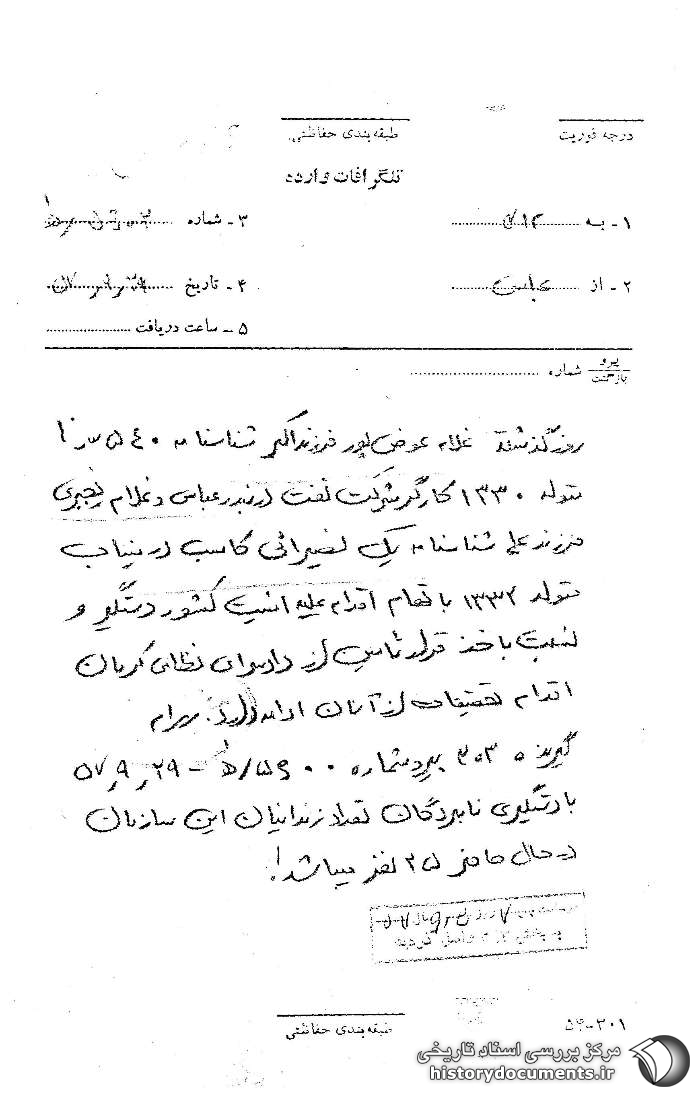 درجه فوریت
طبقه‌بندی حفاظتی
تلگرافات وارده
۱ - به ۳۱۲
۳ - شماره
۲ - از عباس
۴ - تاریخ
۵ - ساعت دریافت
پیرو
بازگشت
شماره
روز گذشته غلام عوض‌پور فرزند اکبر شناسنامه
متولد ۱۳۳۰ کارگر شرکت نفت در بندرعباس و غلام رنجبری
فرزند علی شناسنامه یک نصیرائی کاسب در میناب
متولد ۱۳۳۲ با تهام اقدام علیه امنیت کشور دستگیر و
نسبت باخذ قرار تامین از دادسرای نظامی کرمان
اقدام تحقیقات از آنان ادامه دارد. بهرام
گیرنده ۳۰۳ پیرو شماره ۲۹ر۹ر۵۷
با دستگیری نامبردگان تعداد زندانیان این سازمان
در حال حاضر ۲۵ نفر میباشد!
طبقه‌بندی حفاظتی
۵۴-۲۰۱
مرکز بررسی اسناد تاریخی
historydocuments.ir